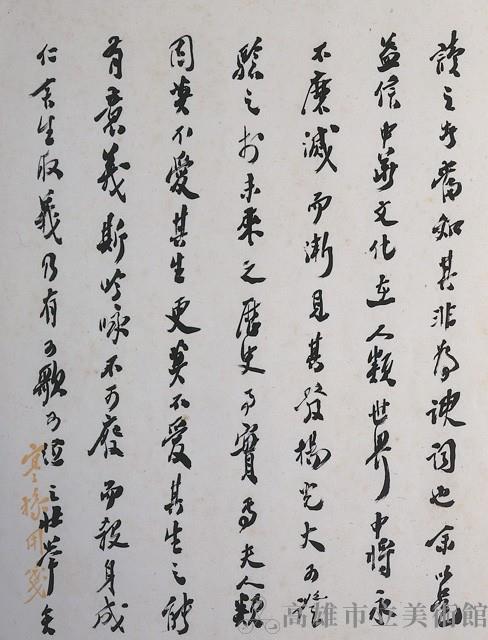 讀之者當知其非為諛詞也余以
益信中華文化在人類世界中將永
不磨滅而漸見其發揚光大可證
驗之於未來之歷史事實焉夫人類
固莫不愛其生更莫不愛其生之能
有意義斯吟咏不可廢而殺身成
仁舍生取義乃有可歌可泣之壯舉矣
寒操用箋
高雄市立美術館